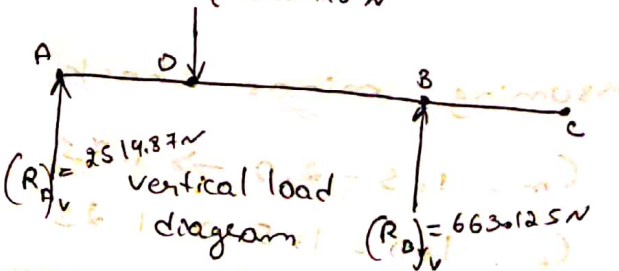 N
A
D
B
C
(R_A)_v = 2519.87N
vertical load
diagram
(R_B)_v = 663.125N